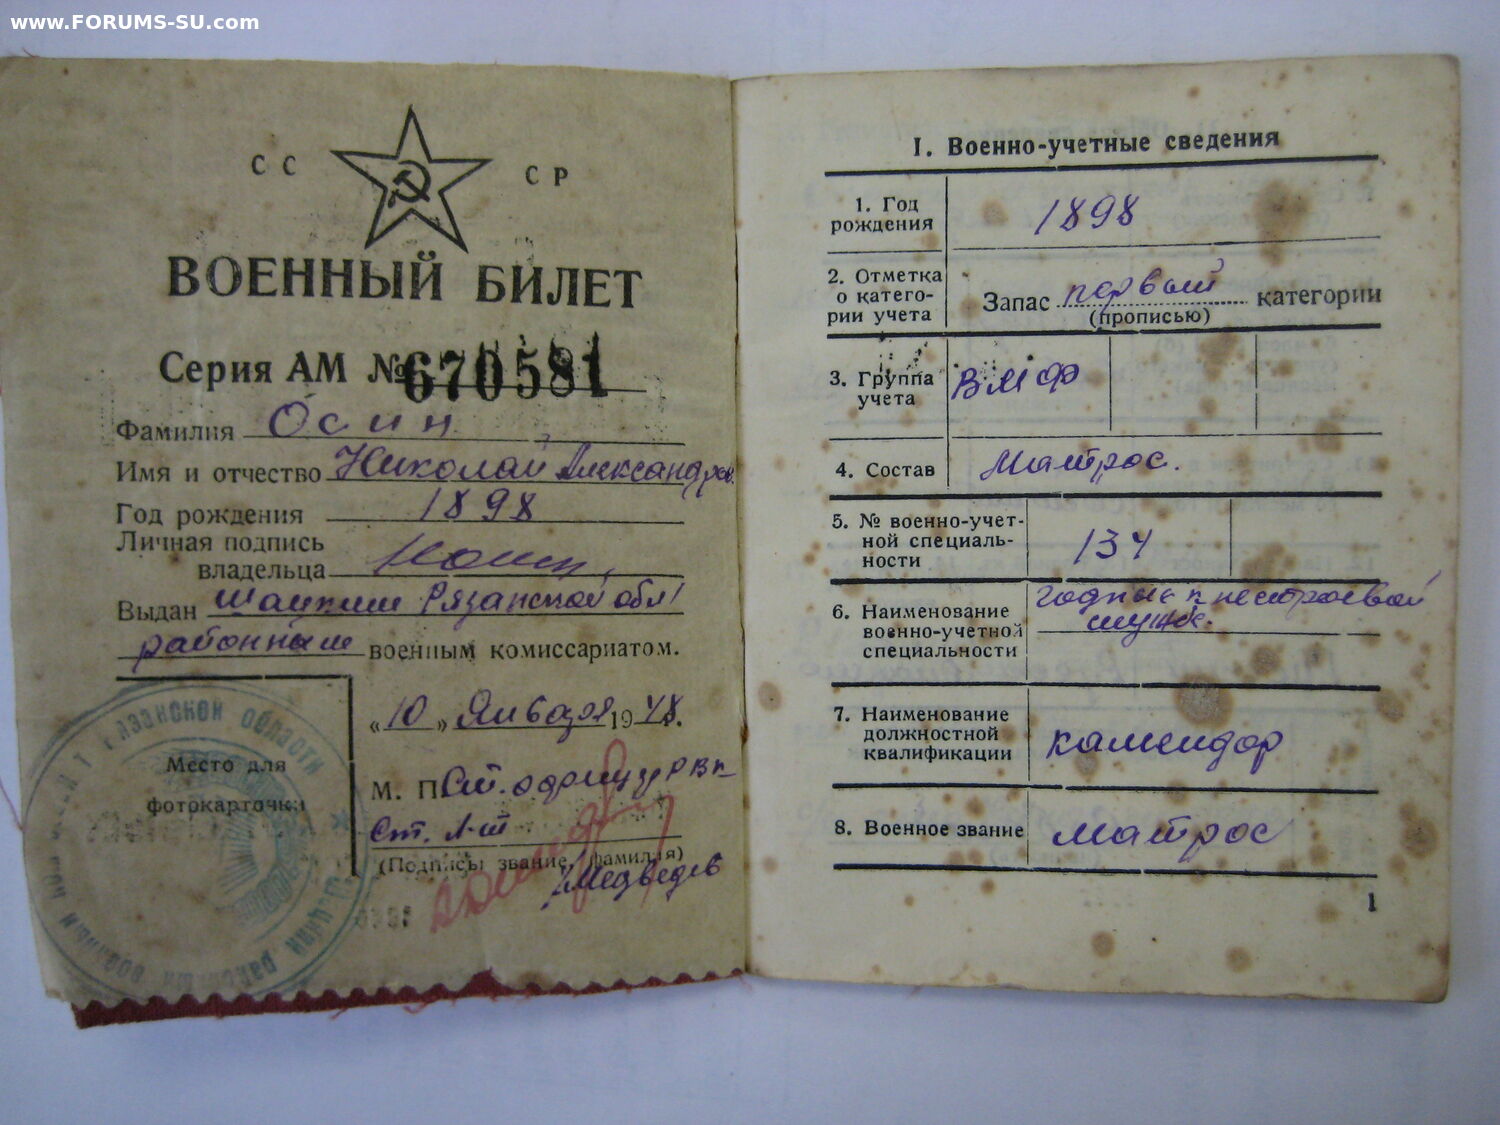 www.FORUMS-SU.com
СС СР
ВОЕННЫЙ БИЛЕТ
Серия АМ № 670581
Фамилия Осин
Имя и отчество Николай Александров.
Год рождения 1898
Личная подпись
владельца
Выдан Шацким Рязанской обл
районным военным комиссариатом.
Место для
фотокарточки
«10» Января 1948.
М. П. Ст. офицер РВК
Ст. л-т
(Подпись, звание, фамилия)
Медведев
I. Военно-учетные сведения
1. Год
рождения
1898
2. Отметка
о катего-
рии учета
Запас первой категории
(прописью)
3. Группа
учета
ВМФ
4. Состав
Матрос.
5. № военно-учет-
ной специаль-
ности
134
6. Наименование
военно-учетной
специальности
годные к нестроевой
службе.
7. Наименование
должностной
квалификации
камендор
8. Военное звание
матрос
1